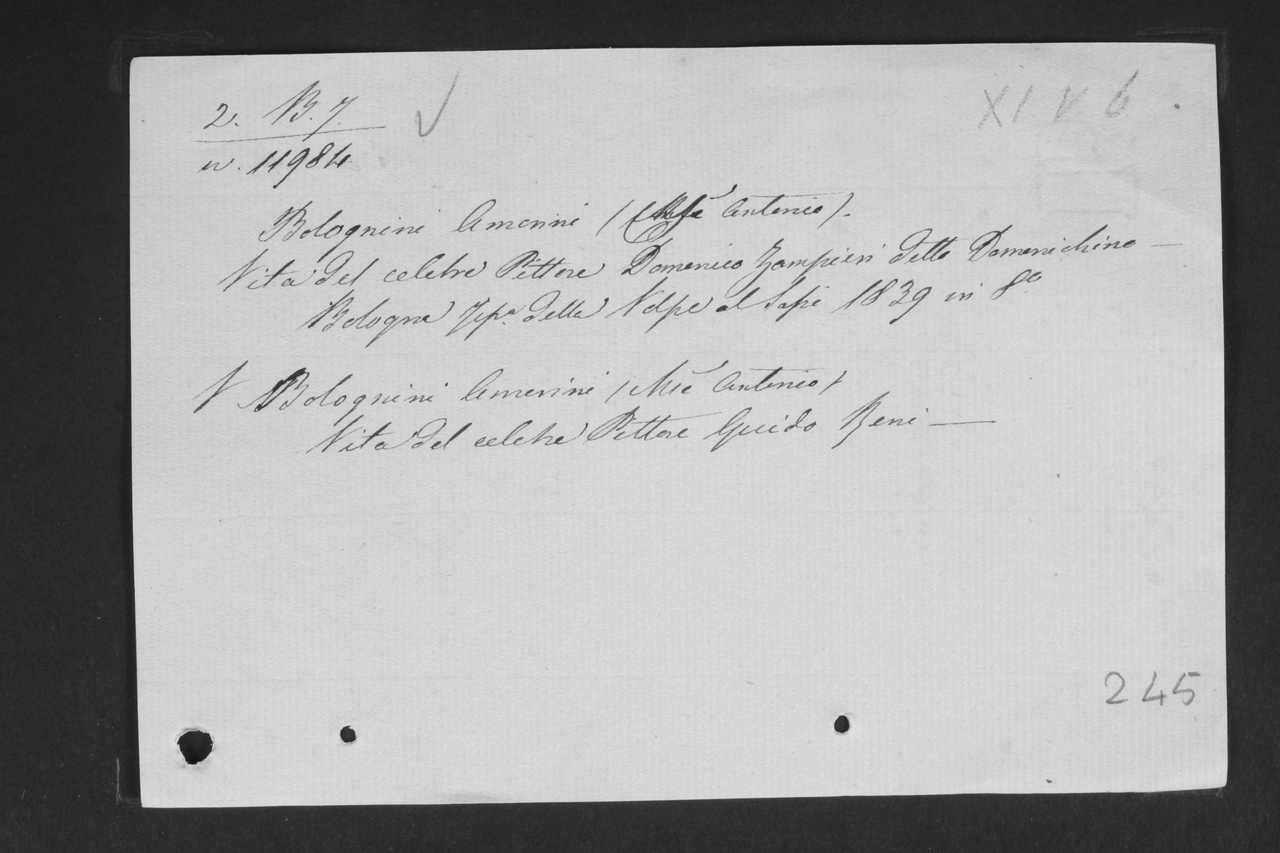 2. B. 7.
XI V 6
n. 11984
Bolognini Amorini (Mse Antonio).
Vita del celebre Pittore Domenico Zampieri detto Domenichino —
Bologna Tipa della Volpe al Sassi 1839 in 8o
V Bolognini Amorini (Mse Antonio)
Vita del celebre Pittore Guido Reni —
245